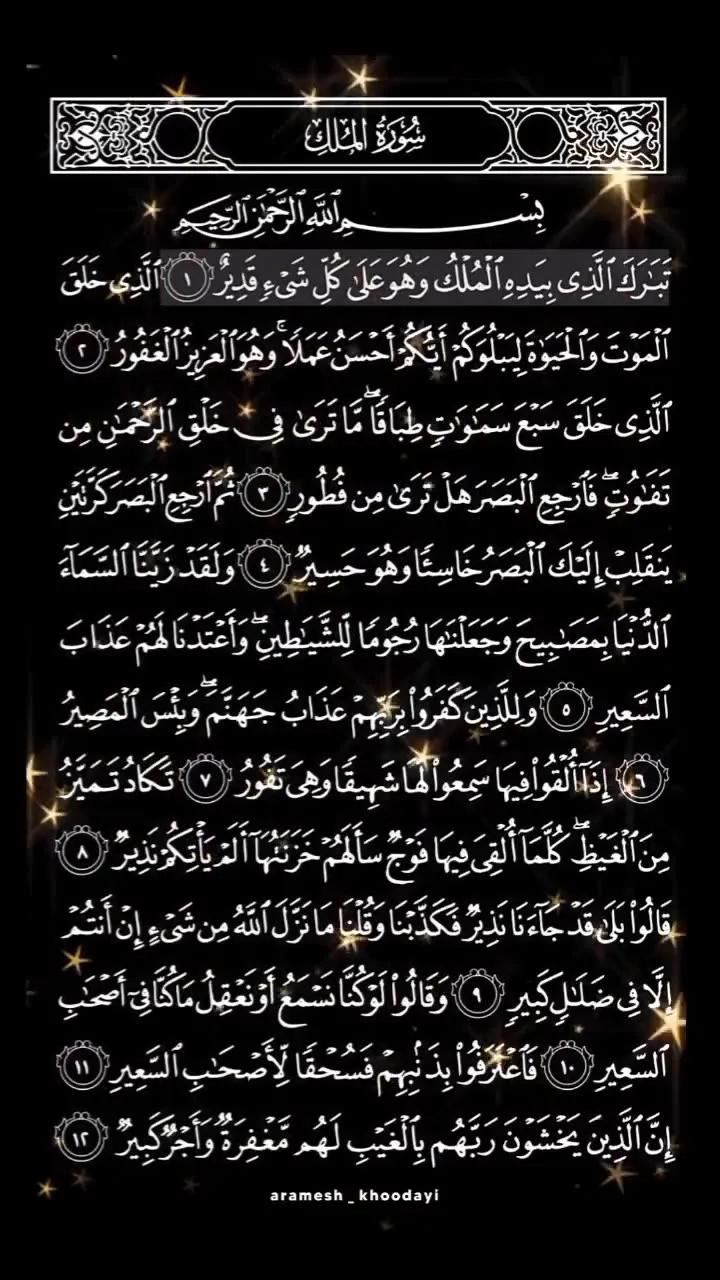 سُورَةُ الْمُلْكِ
بِسْمِ اللَّهِ الرَّحْمَٰنِ الرَّحِيمِ
تَبَٰرَكَ ٱلَّذِى بِيَدِهِ ٱلْمُلْكُ وَهُوَ عَلَىٰ كُلِّ شَىْءٍ قَدِيرٌ ١ ٱلَّذِى خَلَقَ
ٱلْمَوْتَ وَٱلْحَيَوٰةَ لِيَبْلُوَكُمْ أَيُّكُمْ أَحْسَنُ عَمَلًا ۚ وَهُوَ ٱلْعَزِيزُ ٱلْغَفُورُ ٢
ٱلَّذِى خَلَقَ سَبْعَ سَمَٰوَٰتٍ طِبَاقًا ۖ مَّا تَرَىٰ فِى خَلْقِ ٱلرَّحْمَٰنِ مِن
تَفَٰوُتٍ ۖ فَٱرْجِعِ ٱلْبَصَرَ هَلْ تَرَىٰ مِن فُطُورٍ ٣ ثُمَّ ٱرْجِعِ ٱلْبَصَرَ كَرَّتَيْنِ
يَنقَلِبْ إِلَيْكَ ٱلْبَصَرُ خَاسِئًا وَهُوَ حَسِيرٌ ٤ وَلَقَدْ زَيَّنَّا ٱلسَّمَآءَ
ٱلدُّنْيَا بِمَصَٰبِيحَ وَجَعَلْنَٰهَا رُجُومًا لِّلشَّيَٰطِينِ ۖ وَأَعْتَدْنَا لَهُمْ عَذَابَ
ٱلسَّعِيرِ ٥ وَلِلَّذِينَ كَفَرُوا۟ بِرَبِّهِمْ عَذَابُ جَهَنَّمَ ۖ وَبِئْسَ ٱلْمَصِيرُ
٦ إِذَآ أُلْقُوا۟ فِيهَا سَمِعُوا۟ لَهَا شَهِيقًا وَهِىَ تَفُورُ ٧ تَكَادُ تَمَيَّزُ
مِنَ ٱلْغَيْظِ ۖ كُلَّمَآ أُلْقِىَ فِيهَا فَوْجٌ سَأَلَهُمْ خَزَنَتُهَآ أَلَمْ يَأْتِكُمْ نَذِيرٌ ٨
قَالُوا۟ بَلَىٰ قَدْ جَآءَنَا نَذِيرٌ فَكَذَّبْنَا وَقُلْنَا مَا نَزَّلَ ٱللَّهُ مِن شَىْءٍ إِنْ أَنتُمْ
إِلَّا فِى ضَلَٰلٍ كَبِيرٍ ٩ وَقَالُوا۟ لَوْ كُنَّا نَسْمَعُ أَوْ نَعْقِلُ مَا كُنَّا فِىٓ أَصْحَٰبِ
ٱلسَّعِيرِ ١٠ فَٱعْتَرَفُوا۟ بِذَنۢبِهِمْ فَسُحْقًا لِّأَصْحَٰبِ ٱلسَّعِيرِ ١١
إِنَّ ٱلَّذِينَ يَخْشَوْنَ رَبَّهُم بِٱلْغَيْبِ لَهُم مَّغْفِرَةٌ وَأَجْرٌ كَبِيرٌ ١٢
aramesh _ khoodayi